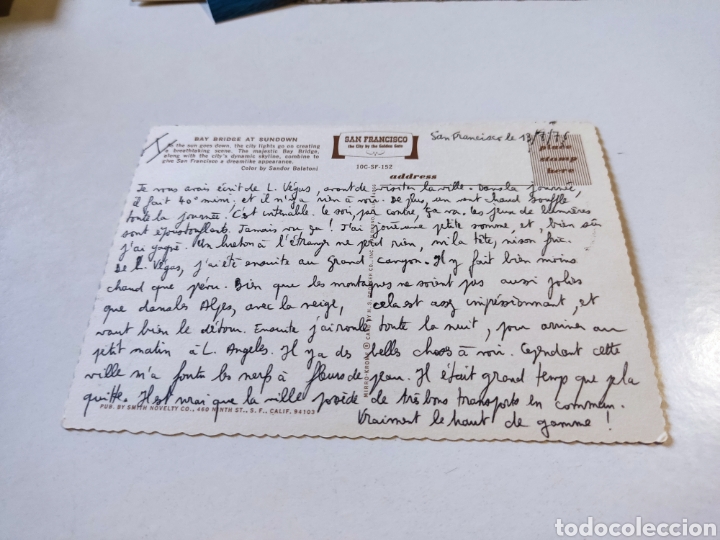 BAY BRIDGE AT SUNDOWN
As the sun goes down, the city lights go on creating
a breathtaking sense. The majestic Bay Bridge,
along with the city's dynamic skyline, combine to
give San Francisco a dreamlike appearance.
Color by Sandor Balatoni
SAN FRANCISCO
the City by the Golden Gate
10C-SF-152
address
San Francisco le 13/7/76
Place
stamp
here
Je vous avais écrit de L. Végas, avant de visiter la ville. Dans la journée,
il fait 40° mini, et il n'y a rien à voir. De plus, un vent chaud souffle
toute la journée. C'est intenable. Le soir, par contre, ça va. Les jeux de lumières
sont époustouflants. Jamais vu ça ! J'ai joué une petite somme, et, bien sûr
j'ai gagné. Un breton à l'étranger ne perd rien, ni la tête, ni son fric.
De L. Végas, j'ai été ensuite au Grand Canyon. Il y fait bien moins
chaud que prévu. Bien que les montagnes ne soient pas aussi jolies
que dans les Alpes, avec la neige, cela est assez impressionnant, et
vaut bien le détour. Ensuite j'ai roulé toute la nuit, pour arriver au
petit matin à L. Angeles. Il y a des belles choses à voir. Cependant cette
ville m'a foutu les nerfs à fleurs de peau. Il était grand temps que je la
quitte. Il est vrai que la ville possède de très bons transports en commun.
Vraiment le haut de gamme !
PUB. BY SMITH NOVELTY CO., 460 NINTH ST., S. F., CALIF. 94103
MIRRO-KROME ® CARD BY H. S. CROCKER CO., INC.
todocoleccion